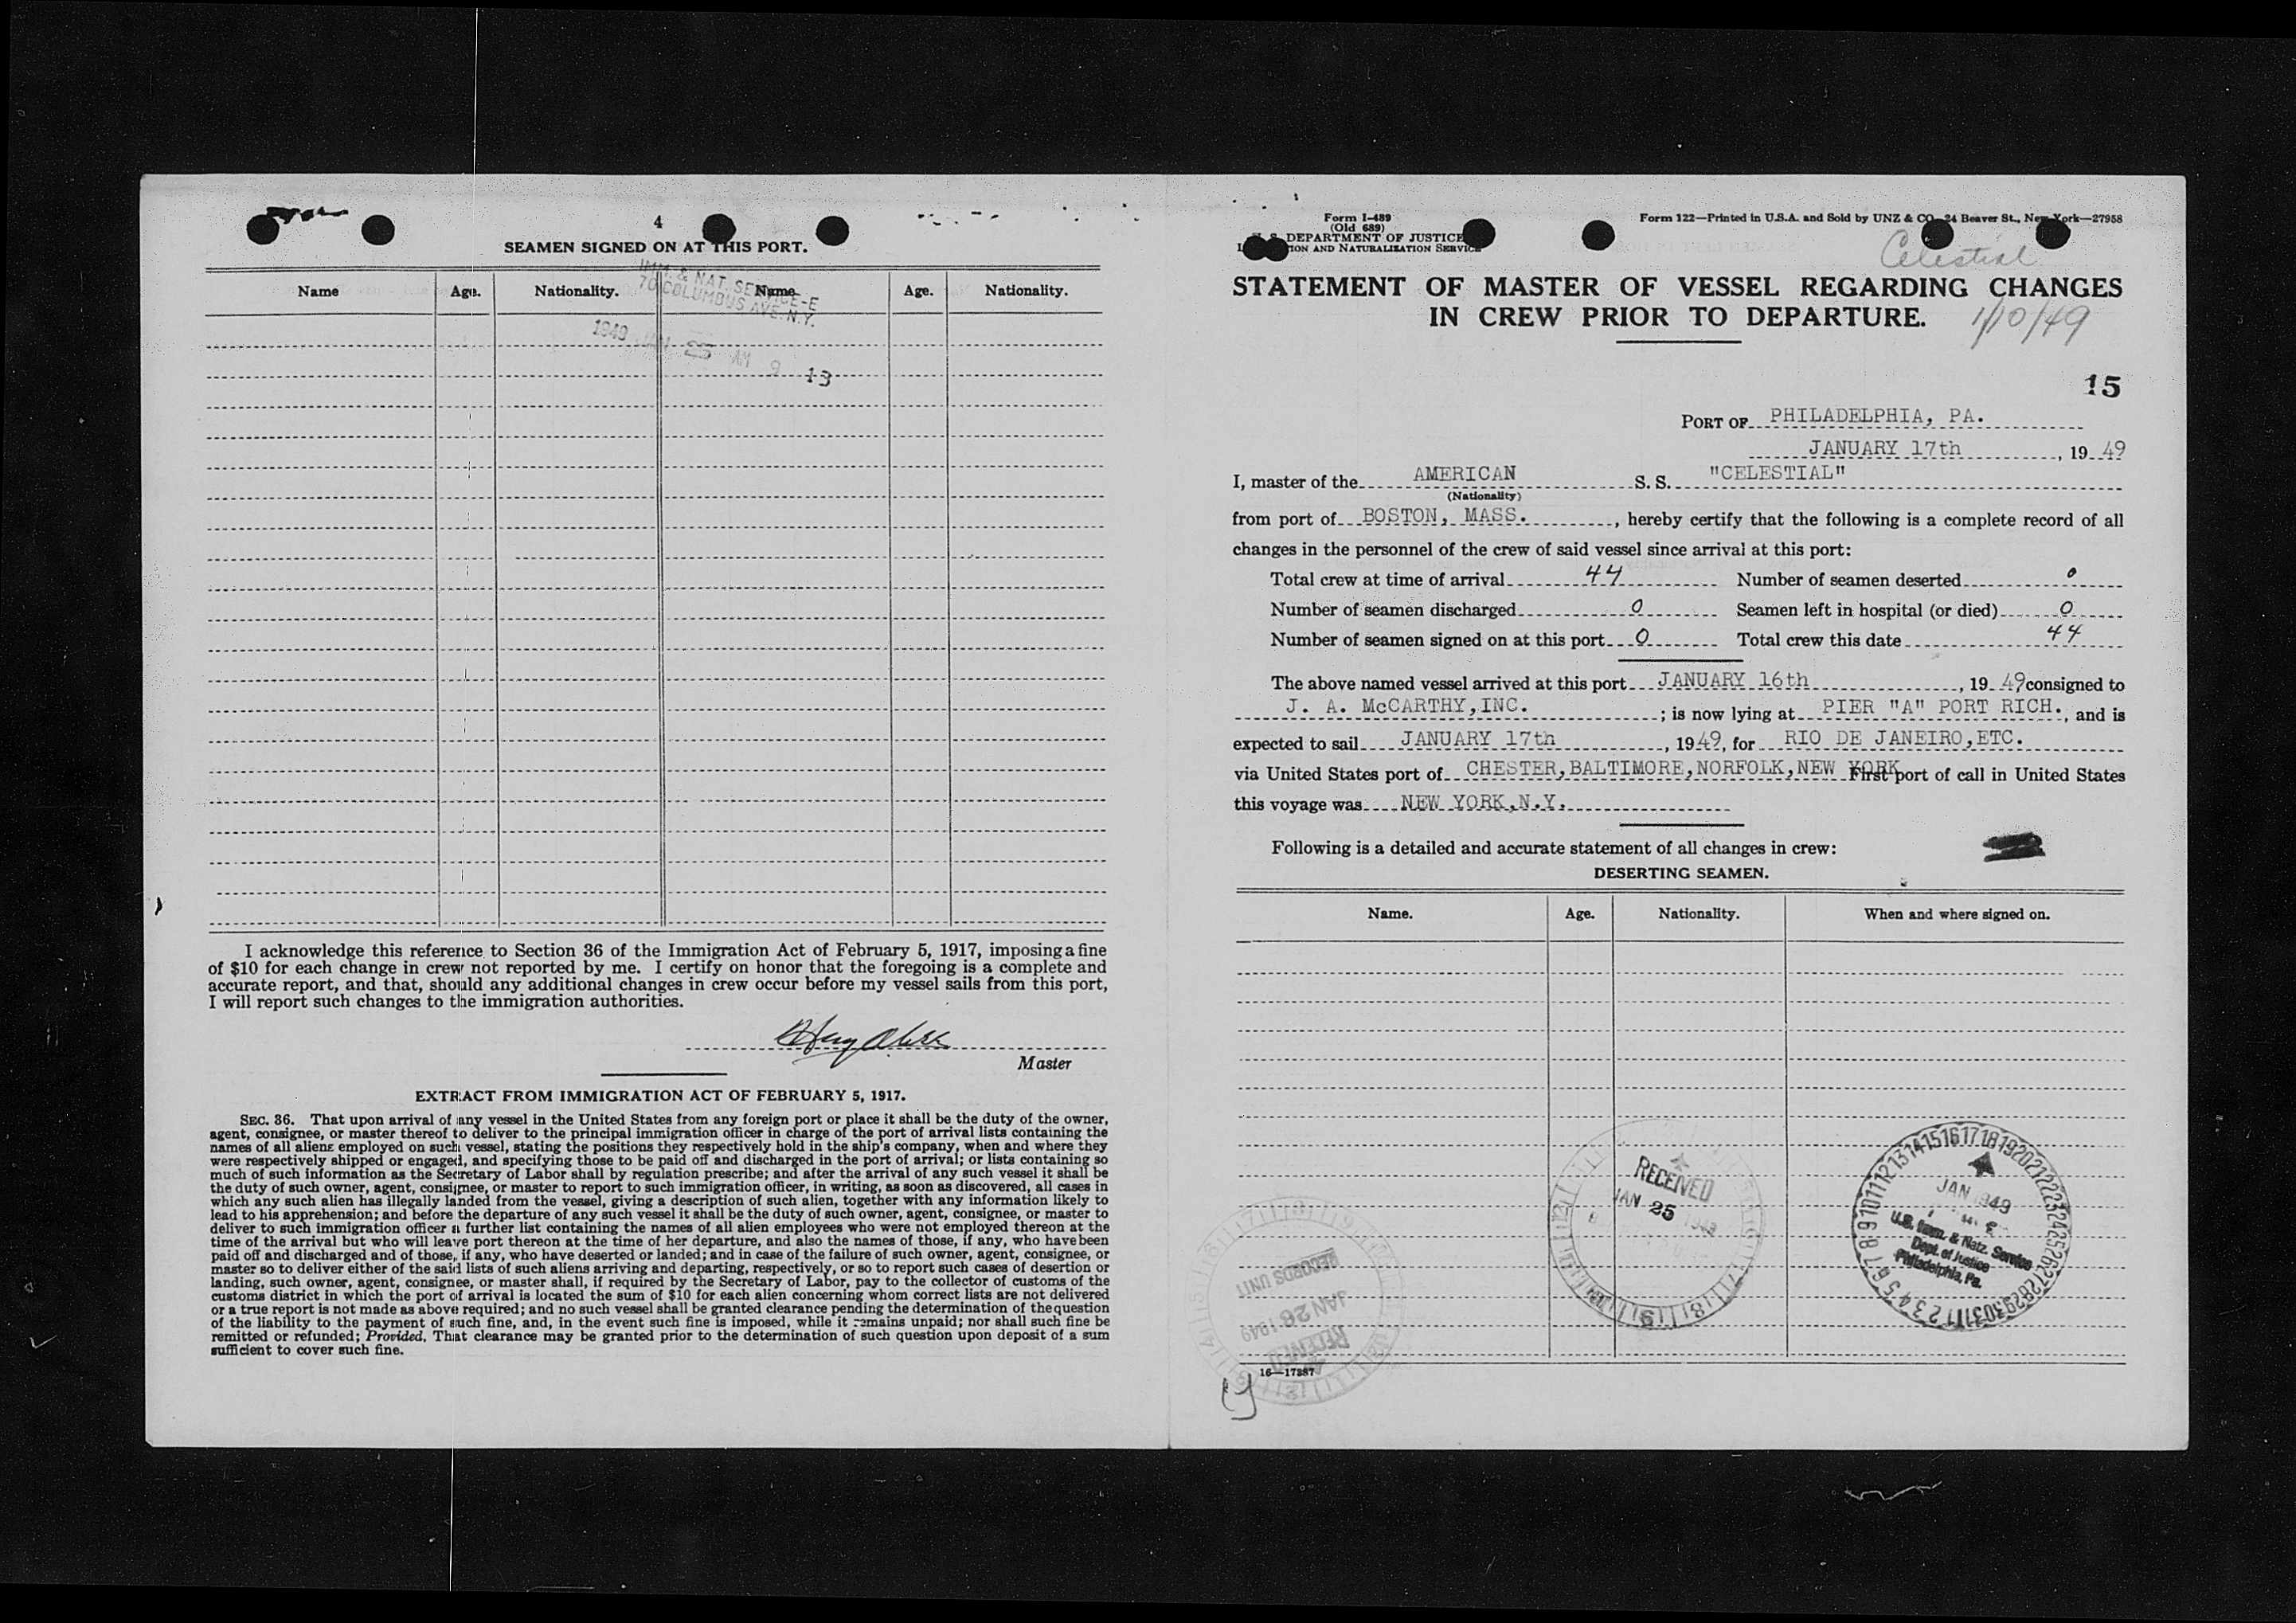 4
SEAMEN SIGNED ON AT THIS PORT.
Name Age. Nationality. Name Age. Nationality.
IMM. & NAT. SERVICE-E
70 COLUMBUS AVE. N.Y.
1949 JAN 25 AM 9 13
I acknowledge this reference to Section 36 of the Immigration Act of February 5, 1917, imposing a fine
of $10 for each change in crew not reported by me. I certify on honor that the foregoing is a complete and
accurate report, and that, should any additional changes in crew occur before my vessel sails from this port,
I will report such changes to the immigration authorities.
Master
EXTRACT FROM IMMIGRATION ACT OF FEBRUARY 5, 1917.
SEC. 36. That upon arrival of any vessel in the United States from any foreign port or place it shall be the duty of the owner,
agent, consignee, or master thereof to deliver to the principal immigration officer in charge of the port of arrival lists containing the
names of all aliens employed on such vessel, stating the positions they respectively hold in the ship's company, when and where they
were respectively shipped or engaged, and specifying those to be paid off and discharged in the port of arrival; or lists containing so
much of such information as the Secretary of Labor shall by regulation prescribe; and after the arrival of any such vessel it shall be
the duty of such owner, agent, consignee, or master to report to such immigration officer, in writing, as soon as discovered, all cases in
which any such alien has illegally landed from the vessel, giving a description of such alien, together with any information likely to
lead to his apprehension; and before the departure of any such vessel it shall be the duty of such owner, agent, consignee, or master to
deliver to such immigration officer a further list containing the names of all alien employees who were not employed thereon at the
time of the arrival but who will leave port thereon at the time of her departure, and also the names of those, if any, who have been
paid off and discharged and of those, if any, who have deserted or landed; and in case of the failure of such owner, agent, consignee, or
master so to deliver either of the said lists of such aliens arriving and departing, respectively, or so to report such cases of desertion or
landing, such owner, agent, consignee, or master shall, if required by the Secretary of Labor, pay to the collector of customs of the
customs district in which the port of arrival is located the sum of $10 for each alien concerning whom correct lists are not delivered
or a true report is not made as above required; and no such vessel shall be granted clearance pending the determination of the question
of the liability to the payment of such fine, and, in the event such fine is imposed, while it remains unpaid; nor shall such fine be
remitted or refunded; Provided, That clearance may be granted prior to the determination of such question upon deposit of a sum
sufficient to cover such fine.
Form I-489
(Old 689)
DEPARTMENT OF JUSTICE
AND NATURALIZATION SERVICE
Form 122—Printed in U.S.A. and Sold by UNZ & CO., 24 Beaver St., New York—27958
Celestial
STATEMENT OF MASTER OF VESSEL REGARDING CHANGES
IN CREW PRIOR TO DEPARTURE.
1/10/49
15
PORT OF PHILADELPHIA, PA.
JANUARY 17th, 19 49
I, master of the AMERICAN S. S. "CELESTIAL"
(Nationality)
from port of BOSTON, MASS., hereby certify that the following is a complete record of all
changes in the personnel of the crew of said vessel since arrival at this port:
Total crew at time of arrival 44 Number of seamen deserted 0
Number of seamen discharged 0 Seamen left in hospital (or died) 0
Number of seamen signed on at this port 0 Total crew this date 44
The above named vessel arrived at this port JANUARY 16th, 19 49 consigned to
J. A. McCARTHY,INC.; is now lying at PIER "A" PORT RICH., and is
expected to sail JANUARY 17th, 1949, for RIO DE JANEIRO,ETC.
via United States port of CHESTER,BALTIMORE,NORFOLK,NEW YORK First port of call in United States
this voyage was NEW YORK,N.Y.
Following is a detailed and accurate statement of all changes in crew:
DESERTING SEAMEN.
Name. Age. Nationality. When and where signed on.
RECEIVED
JAN 25 1949
JAN 1949
U.S. Imm. & Natz. Service
Dept. of Justice
Philadelphia, Pa.
RECORDS UNIT
JAN 26 1949
RECEIVED
16—17387